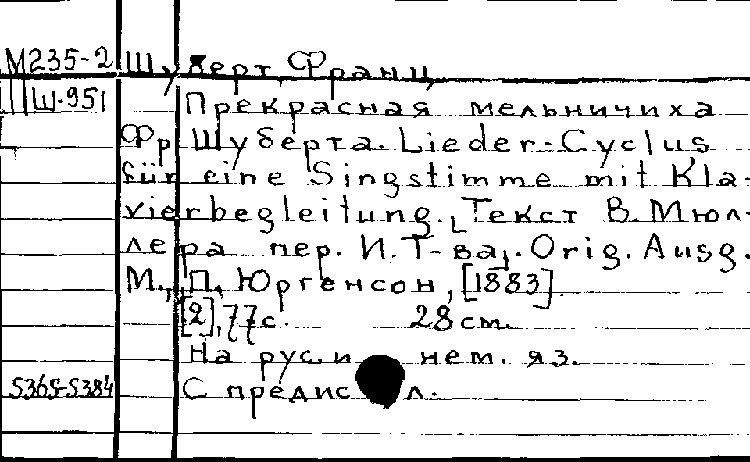 М235-2 Шуберт, Франц
Ш-951 Прекрасная мельничиха
Фр. Шуберта. Lieder-Cyclus
für eine Singstimme mit Kla-
vierbegleitung. [Текст В. Мюл-
лера пер. И. Т-ва]. Orig. Ausg.
М., П. Юргенсон, [1883]
[2], 77 с. 28 см.
На рус. и нем. яз.
5365-5384 С предисл.